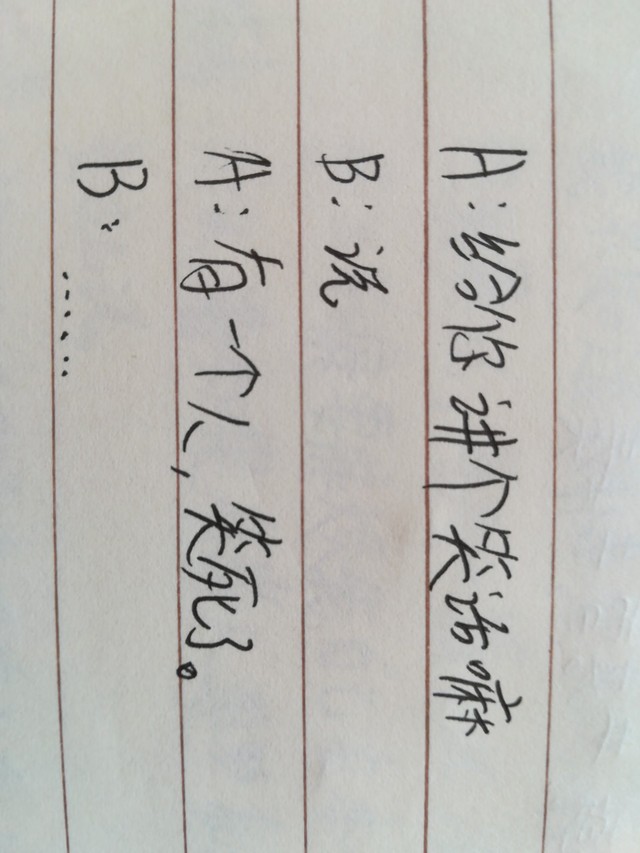 A：给你讲个笑话嘛
B：说
A：有一个人，笑死了。
B：……